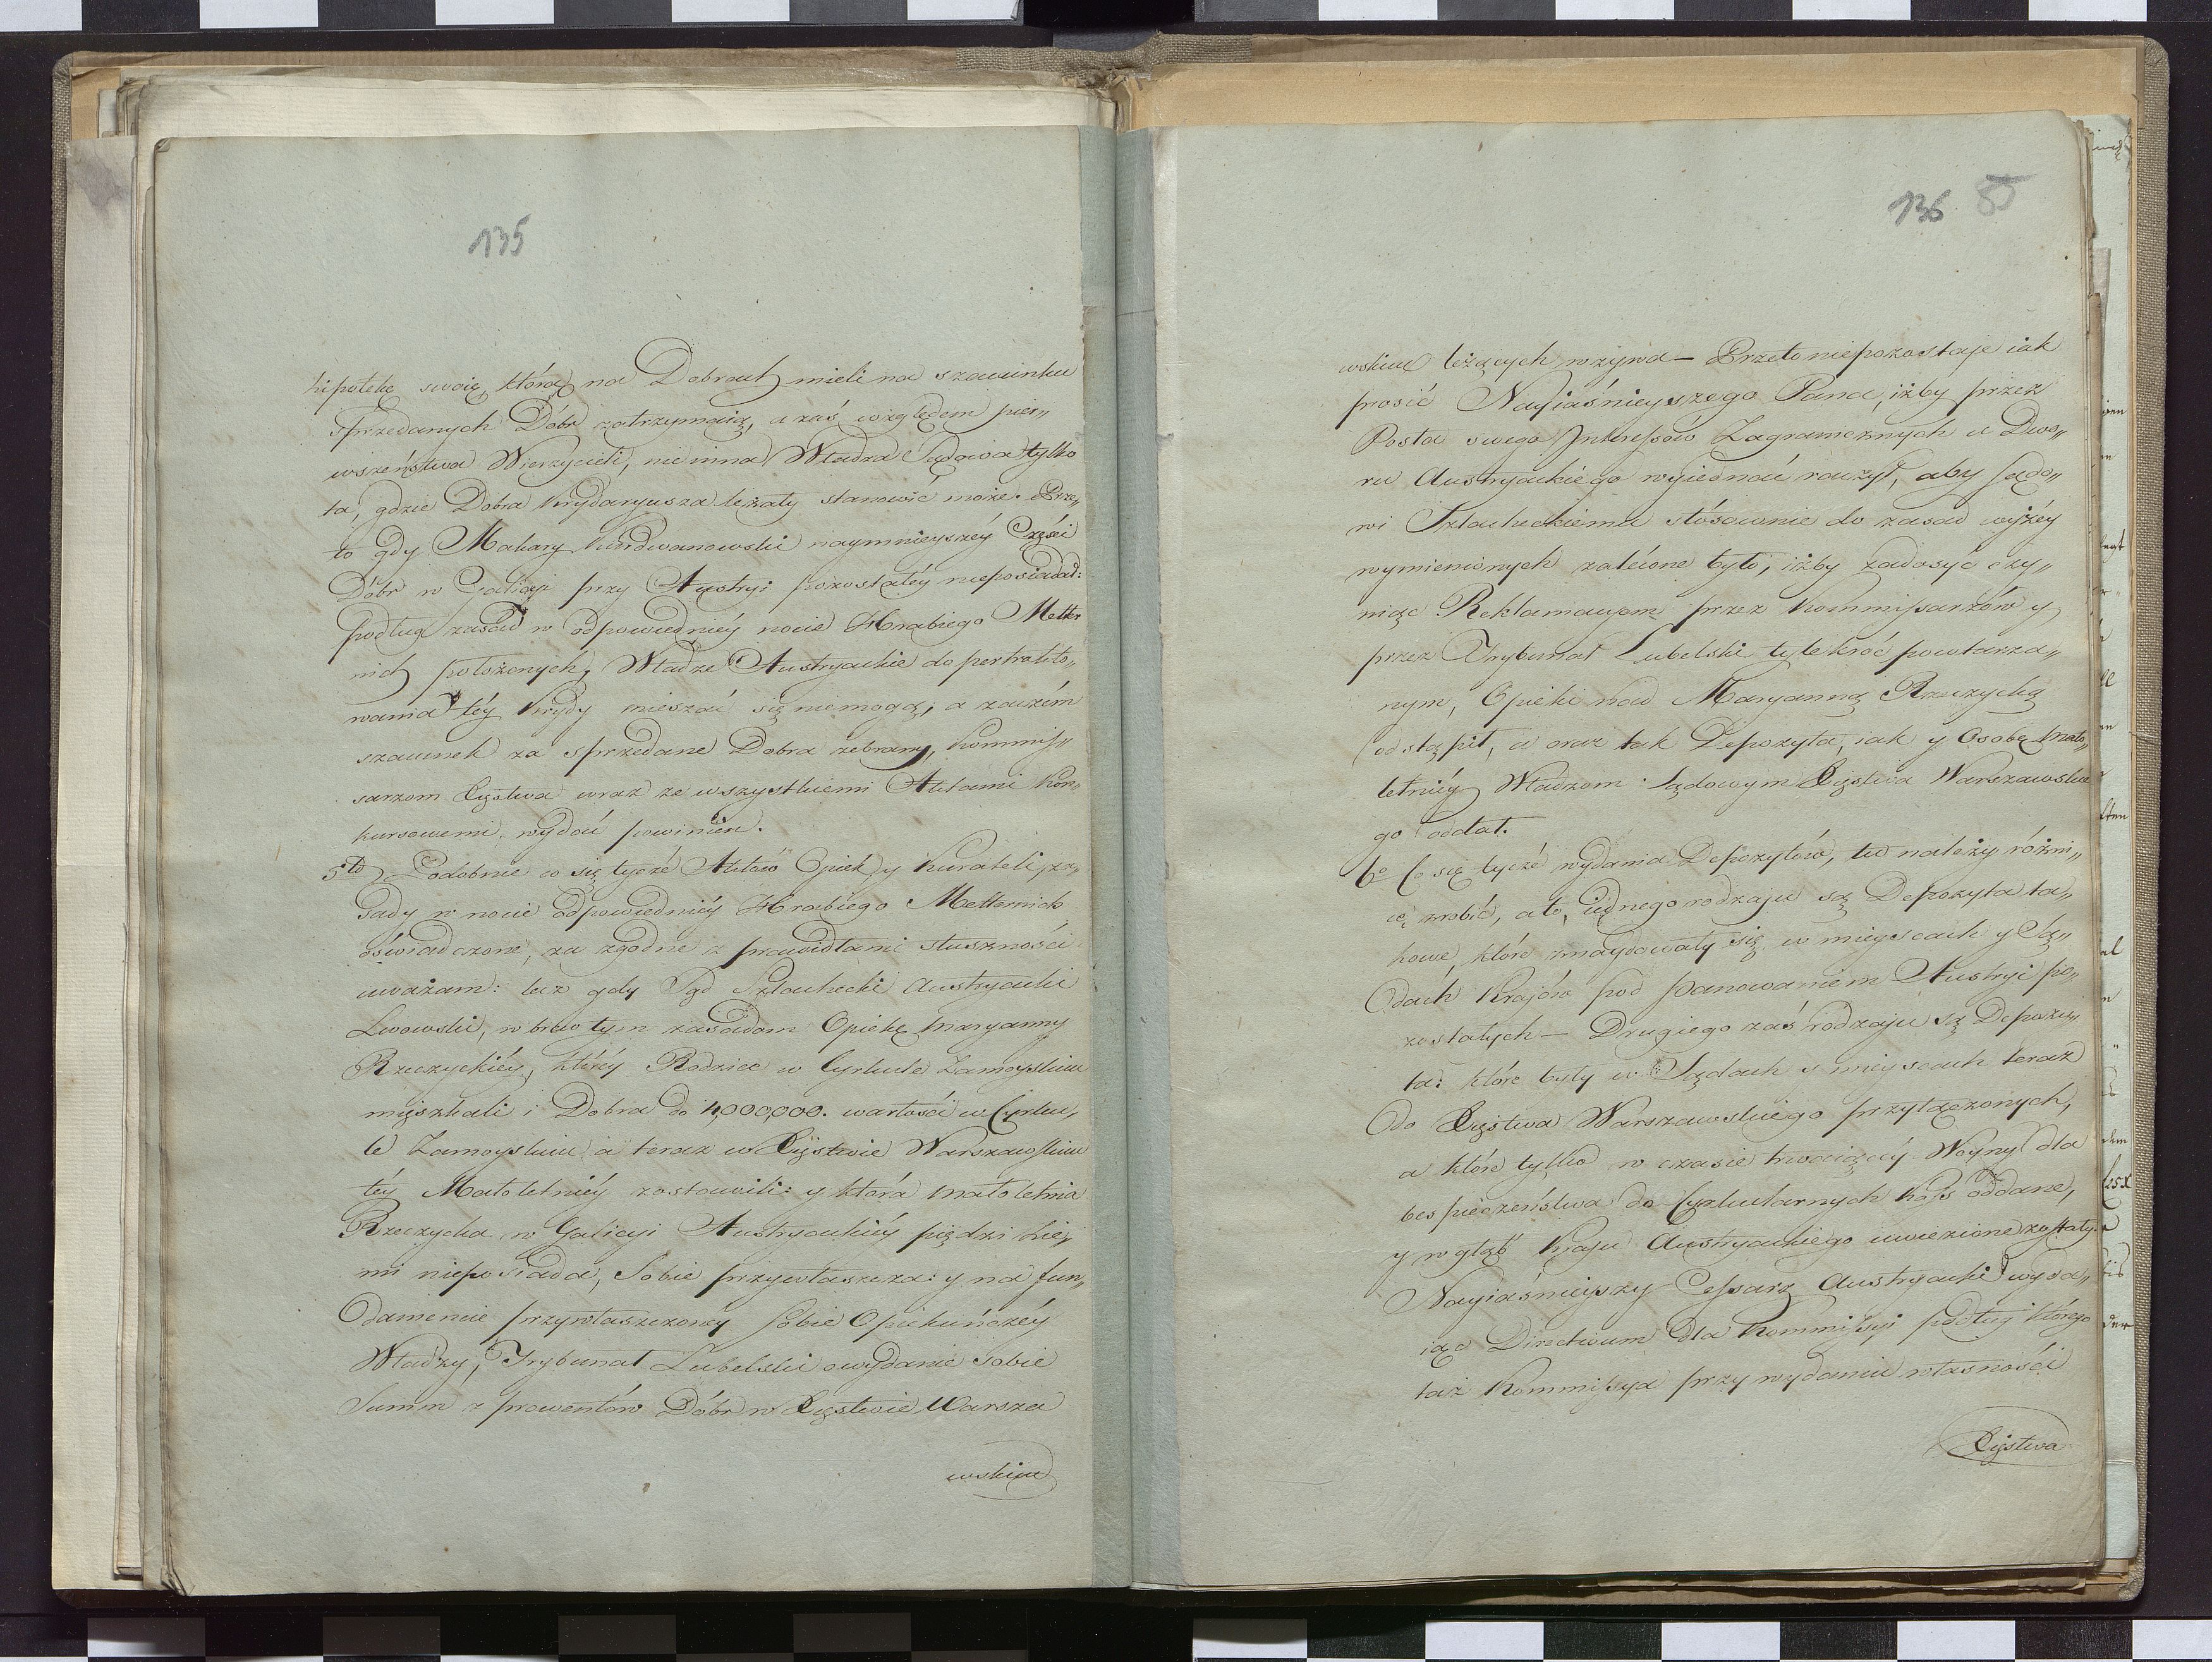 135
hipotekę swoię, którą na Dobrach mieli na szacunku
sprzedanych Dóbr zatrzymaią, a zaś względem pier„
wszeństwa Wierzycieli, nie inna Władza Sądowa tylko
ta, gdzie Dobra Krydaryusza leżały stanowić może. Prze„
to gdy Makary Kurdwanowski naymnieyszéy Części
Dóbr w Galicyi przy Austryi pozostałéy nieposiadał:
podług zasad w odpowiednéy nocie Hrabiego Metter
nich położonych, Władze Austryackie do pertrakto„
wania téy Krydy mieszać się niemogą; a zaczém
szacunek za sprzedane Dobra zebrany, Kommis„
sarzom Xięstwa wraz ze wszystkiemi Aktami Kon„
kursowemi, wydać powinien.
5to Podobnie co się tycze Aktów Opiek y Kurateli, za„
sady w nocie odpowiedniéy Hrabiego Metternich
oświadczone, za zgodne z prawidłami słuszności
uważam: lecz gdy Sąd Szlachecki Austryacki
Lwowski, wbrew tym zasadom Opiekę Maryanny
Rzeczyckiéy, któréy Rodzice w Cyrkule Zamoyskim
mięszkali i Dobra do 4,000,000. wartości w Cyrku„
le Zamoyskim a teraz w Xięstwie Warszawskim
téy Małoletniéy zostawili: y która małoletnia
Rzeczycka w Galicyi Austryackiéy piędzi Zie„
mi nieposiada, Sobie przywłaszcza: y na fun„
damencie przywłaszczonéy sobie Opiekuńczéy
Władzy, Trybunał Lubelski o wydanie sobie
Summ z prowentów Dóbr w Xięstwie Warsza
wskim
136 85
wskim leżących wzywa — Przeto niepozostaje iak
prosić Nayiaśnieyszego Pana, iżby przez
Posła swego Interessów Zagranicznych u Dwo„
ru Austryackiego wyiednać raczył, aby Sądo„
wi Szlacheckiemu stósownie do zasad wyżéy
wymienionych zalécone było, iżby zadosyć czy„
niąc Reklamacyom przez Kommissarzów y
przez Trybunał Lubelski tylekroć powtarza„
nym, Opieki nad Maryanną Rzeczycką
odstąpił, a oraz tak Depozyta, iak y Osobę Mało„
letniéy Władzom Sądowym Xięstwa Warszawskie
go oddał.
6o Co się tycze wydania Depozytów, tu należy różni„
cę zrobić, a to, iednego rodzaju są Depozyta ta„
kowe, które znaydowały się w mieyscach y Są„
dach Krajów pod panowaniem Austryi po„
zostałych — Drugiego zaś rodzaju są Depozy„
ta: które były w Sądach y mieyscach teraz
do Xięstwa Warszawskiego przyłączonych,
a które tylko w czasie trwaiącéy Woyny dla
bespieczeństwa do Cyrkularnych Kass oddane,
y w głąb Kraju Austryackiego uwiezione zostały.
Nayiaśnieyszy Cesarz Austryacki wyda„
iąc Directivum dla Kommissyi podług którego
taż Kommissya przy wydaniu własności
Xięstwa